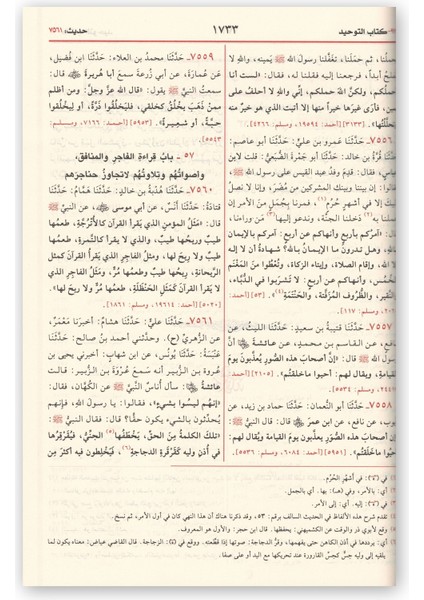 كتاب التوحيد
١٧٣٣
حديث: ٧٥٦١
حملنا، ثم حملَنا، تغفَّلْنا رسولَ الله ﷺ يمينه، والله لا
نفلح أبداً، فرجعنا إليه فقلنا له، فقال: «لست أنا
أحملكم، ولكنَّ الله حملكم، إنِّي والله لا أحلف على
يمين، فأرى غيرَها خيراً منها إلا أتيت الذي هو خيرٌ منه
وتحلَّلتُها». [٣١٣٣] [أحمد: ١٩٥٩٤، ومسلم: ٤٢٦٦].
٧٥٥٦ـ حَدَّثَنَا عمرو بن علي: حَدَّثَنَا أبو عاصم:
حَدَّثَنَا قُرَّة بن خالد: حَدَّثَنَا أبو جَمْرة الضُّبَعيُّ: قلت لابن
عباس، فقال: قَدِمَ وفدُ عبد القيس على رسول الله ﷺ،
فقالوا: إن بيننا وبينك المشركين من مُضَرَ، وإنا لا نصلُ
إليك إلا في أشهرٍ حُرُمٍ(١)، فمرنا بجُمَلٍ من الأمر إن
عملنا به(٢) دَخلنا الجنَّة، وندعو إليها(٣) مَن وراءنا،
قال: «آمركم بأربع وأنهاكم عن أربع: آمركم بالإيمان
بالله، وهل تدرونَ ما الإيمان بالله؟ شهادة أن لا إله
إلا الله، وإقام الصلاة، وإيتاء الزكاة، وتُعطُوا من المَغْنَم
الخُمسَ، وأنهاكم عن أربع: لا تشربوا في الدُّبَّاء،
والنَّقير، والظُّروف المُزفَّتة، والحَنْتَمة»(٤). [٥٣] [أحمد:
٢٠٢٠، ومسلم: ١١٧].
٧٥٥٧ـ حَدَّثَنَا قتيبة بن سعيد: حَدَّثَنَا الليث، عن
نافع، عن القاسم بن محمد، عن عائشةَ ﷺا أن
رسول الله ﷺ قال: «إنَّ أصحابَ هذه الصُّوَر يُعذَّبونَ يومَ
القيامة، ويقال لهم: أحيوا ما خلقتُم». [٢١٠٥] [أحمد:
ومسلم: ٥٥٣٤].
٧٥٥٨ـ حَدَّثَنَا أبو النُّعمان: حَدَّثَنَا حماد بن زيد، عن
أيوب، عن نافع، عن ابن عمرَ قال: قال النبيُّ ﷺ:
«إن أصحابَ هذه الصُّوَر يعذَّبون يومَ القيامة ويقال لهم:
أحيوا ما خلقتُم». [٥٩٥١] [أحمد: ٦٠٨٤، ومسلم: ٥٥٣٦].
٧٥٥٩ـ حَدَّثَنَا محمدُ بن العلاء: حَدَّثَنَا ابن فُضيل،
عن عُمارَةَ، عن أبي زُرعةَ سمعَ أبا هُريرةَ قال:
سمعتُ النبيَّ ﷺ يقول: «قال الله عزَّ وجلَّ: ومن أظلم
ممن ذَهَبَ يَخلُقُ كخلقي، فليَخلُقوا ذرَّةً، أو ليخلُقوا
حبَّةً، أو شعيرةً». [٥٩٥٣] [أحمد: ٧١٦٦، ومسلم:
٥٥٤٣].
٥٧ ـ بابُ قراءةِ الفاجرِ والمنافق،
وأصواتُهُم وتلاوتُهُم لا تجاوزُ حناجرَهُم
٧٥٦٠ـ حَدَّثَنَا هُدْبة بن خالد: حَدَّثَنَا هَمَّام: حَدَّثَنَا
قتادةُ: حَدَّثَنَا أنس، عن أبي موسى، عن النبيِّ ﷺ
قال: «مَثَلُ المؤمنِ الذي يقرأ القرآن كالأُتْرُجَّة، طعمُها
طيبٌ وريحُها طيبٌ، والذي لا يقرأ كالتَّمرة، طعمُها
طيبٌ ولا ريحَ لها، ومثلُ الفاجر الذي يقرأ القرآن كمثل
الرَّيحانة، ريحُها طيبٌ وطعمُها مُرٌّ، ومثلُ الفاجر الذي
لا يقرأ القرآن كمثلِ الحنظلةِ، طعمُها مُرٌّ ولا ريحَ لها».
[٥٠٢٠] [أحمد: ١٩٦١٤، ومسلم: ١٨٦١].
٧٥٦١ـ حَدَّثَنَا عليٌّ: حَدَّثَنَا هشامٌ: أخبرَنا مَعْمَرٌ،
عن الزُّهريِّ (ح). وحدَّثني أحمد بن صالح: حَدَّثَنَا
عَنْبَسةُ: حَدَّثَنَا يُونُس، عن ابن شهابٍ: أخبرني يحيى بن
عروة بن الزُّبير أنه سمعَ عُرْوةَ بن الزُّبير: قالت
عائشةُ: سأل أناسٌ النَّبيَّ ﷺ عن الكُهَّان، فقال:
«إنهم ليسوا بشيء»، فقالوا: يا رسول الله، فإنَّهم
يُحدِّثون بالشيء يكون حقًّا؟ قال: فقال النبيُّ ﷺ:
«تلك الكلمةُ من الحقِّ، يَخطَفُها(٥) الجِنِّيُّ، فيُقَرْقِرُها
في أُذُن وليه كقَرْقَرة الدجاجةِ(٦)، فيَخلِطون فيه أكثرَ مِن
في: في أشهُرِ الحُرُم.
أي: بالأمر، وفي: بها، أي بالجمل.
في: إليه. أي: إلى الأمر.
تقدم شرح هذه الألفاظ في الحديث السالف برقم: ٥٣، وقد ذكرنا هناك أن هذا النهي كان في أول الأمر، ثم نسخ.
وقع لأبوي ذر والوقت عن الكشميهني: يحفظها. قال ابن حجر: والأول هو المعروف.
أي: يرددها في أذن الكاهن حتى يفهمها، وقَرُّ الدجاجة: صوتها إذا قطعته. ووقع في: الزجاجة. قال القاضي عياض: معناه يكون لما
يلقيه إلى وليه حِسٌّ كحِسِّ القارورة عند تحريكها مع اليد أو على صفا.